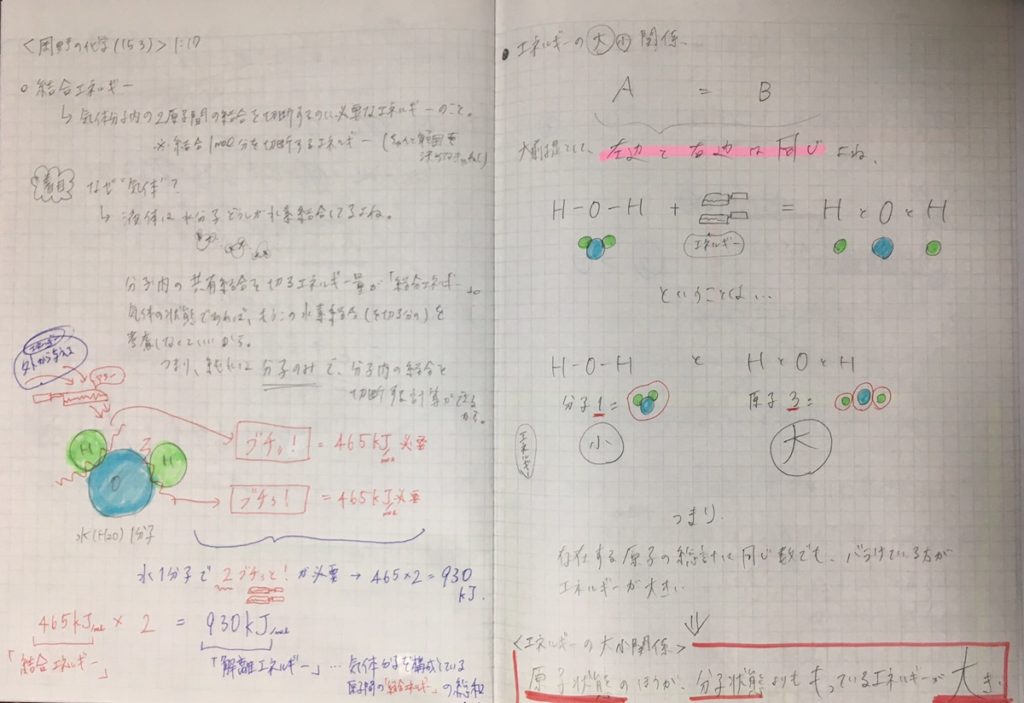 <岡野の化学(153)> 1:17
○ 結合エネルギー
↳ 気体分子内の2原子間の結合を切断するのに必要なエネルギーのこと。
※ 結合1mol分を切断するエネルギー
なぜ"気体"?
↳ 液体は水分子どうしが水素結合してるよね。
分子内の共有結合を切るエネルギー量が「結合エネルギー」。
気体の状態であれば、もうこの水素結合(を切る分の)を
考慮しなくていいから。
つまり、純粋に分子のみで、分子内の結合を
切断 計算ができる
から。
エネルギー
外から与える
H O H
ブチッ! = 465kJ/mol 必要
ブチッ! = 465kJ/mol 必要
水(H2O) 1分子
水1分子で 2ブチッと! が必要 → 465×2 = 930
kJ.
465kJ/mol × 2 = 930kJ/mol
「結合エネルギー」
「解離エネルギー」… 気体分子を構成している
原子間の「結合エネルギー」の総和
● エネルギーの 大 小 関係.
A = B
大前提として、左辺と右辺は同じ よね、
H-O-H + = H × O × H
エネルギー
ということは…
H-O-H と H × O × H
分子1 = 原子 3 =
エネルギー 小 大
つまり.
存在する原子の総計は同じ数でも、バラけている方が
エネルギーが大きい.
⇓
<エネルギーの大小関係>
原子状態のほうが、分子状態よりももっているエネルギーが大きい.